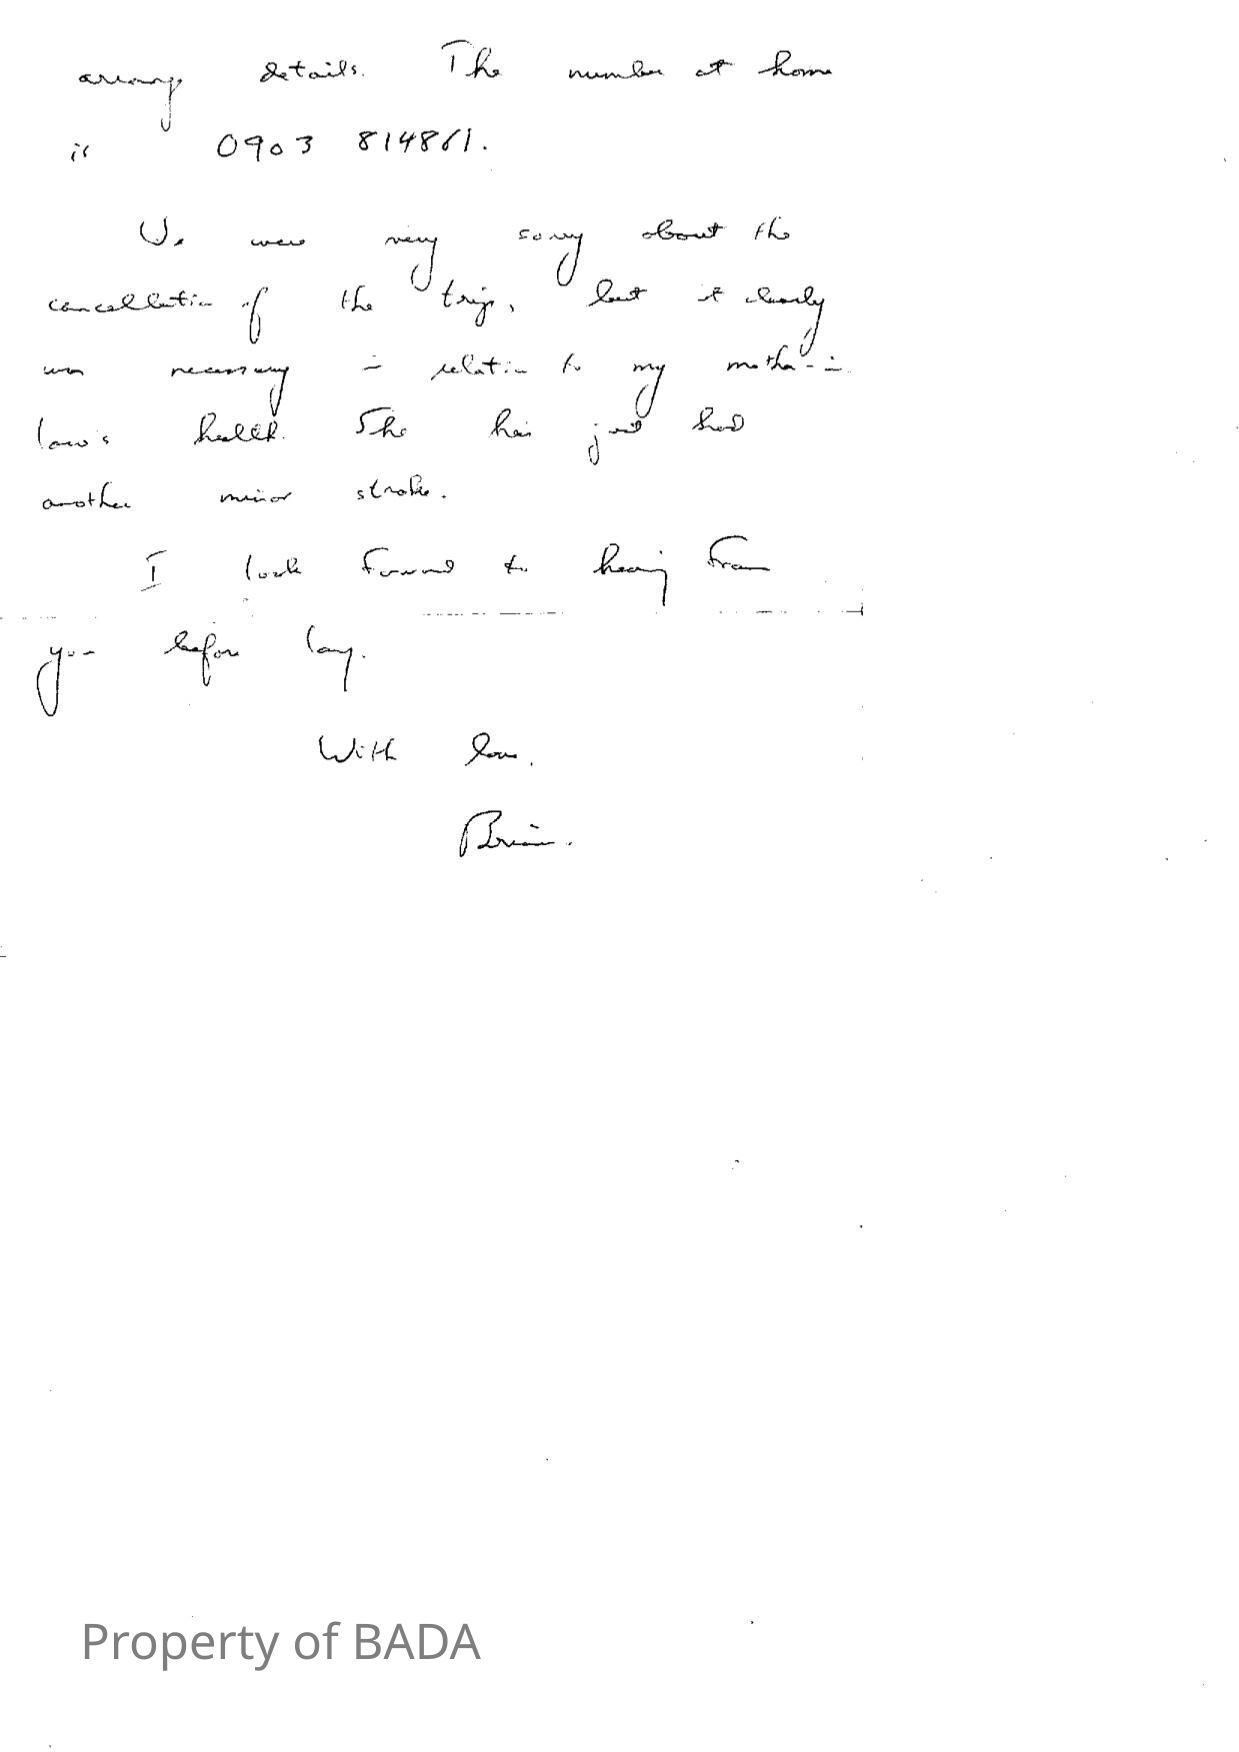 arrange details. The number at home
is 0903 814861.
We were very sorry about the
cancellation of the trip, but it clearly
was necessary in relation to my mother-in-
law's health. She has just had
another minor stroke.
I look forward to hearing from
you before long.
With love,
Brian.
Property of BADA